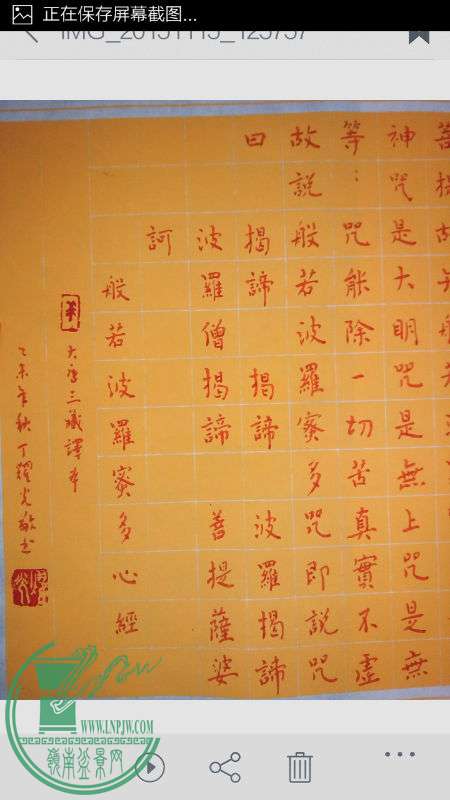 正在保存屏幕截图...
神咒是大明咒是無上咒是無
等：咒能除一切苦真實不虛
故説般若波羅蜜多咒即説咒
曰揭諦揭諦波羅揭諦
波羅僧揭諦菩提薩婆
訶
般若波羅蜜多心經
大唐三藏譯本
乙未年秋丁耀光敬书
WWW.LNPJW.COM
嶺南盆景网